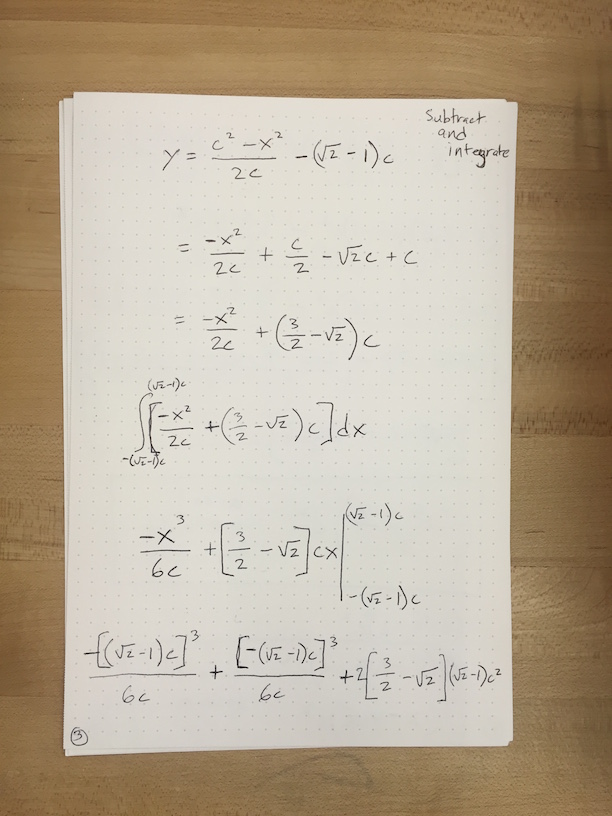 Subtract
and
integrate
y = \frac{c^2 - x^2}{2c} - (√2 - 1)c
= \frac{-x^2}{2c} + \frac{c}{2} - √2c + c
= \frac{-x^2}{2c} + (\frac{3}{2} - √2)c
\int_{-(√2-1)c}^{(√2-1)c} [\frac{-x^2}{2c} + (\frac{3}{2} - √2)c] dx
\frac{-x^3}{6c} + [\frac{3}{2} - √2]cx |_{-(√2-1)c}^{(√2-1)c}
\frac{-[(√2-1)c]^3}{6c} + \frac{[-(√2-1)c]^3}{6c} + 2[\frac{3}{2} - √2](√2-1)c^2
3